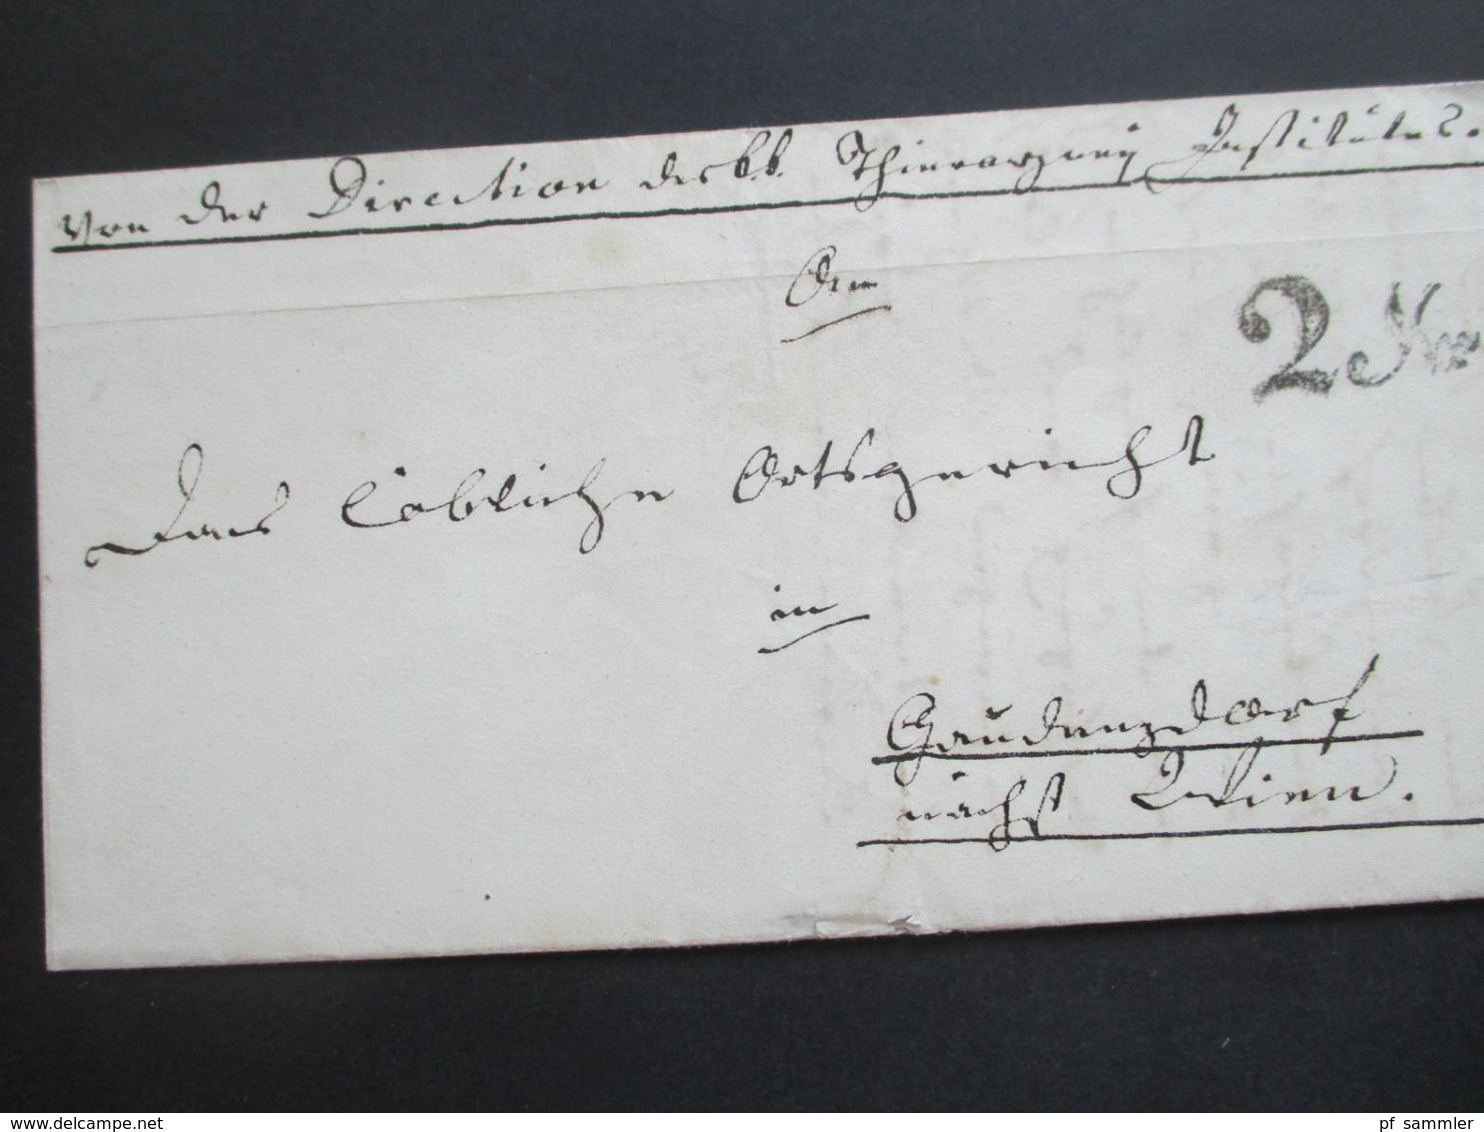 Von der Direction des k.k. Thierarzney Institutes.
An
2 Kr
Das Löbliche Ortsgericht
in
Gaudenzdorf
nächst Wien.
www.delcampe.net
pf_sammler